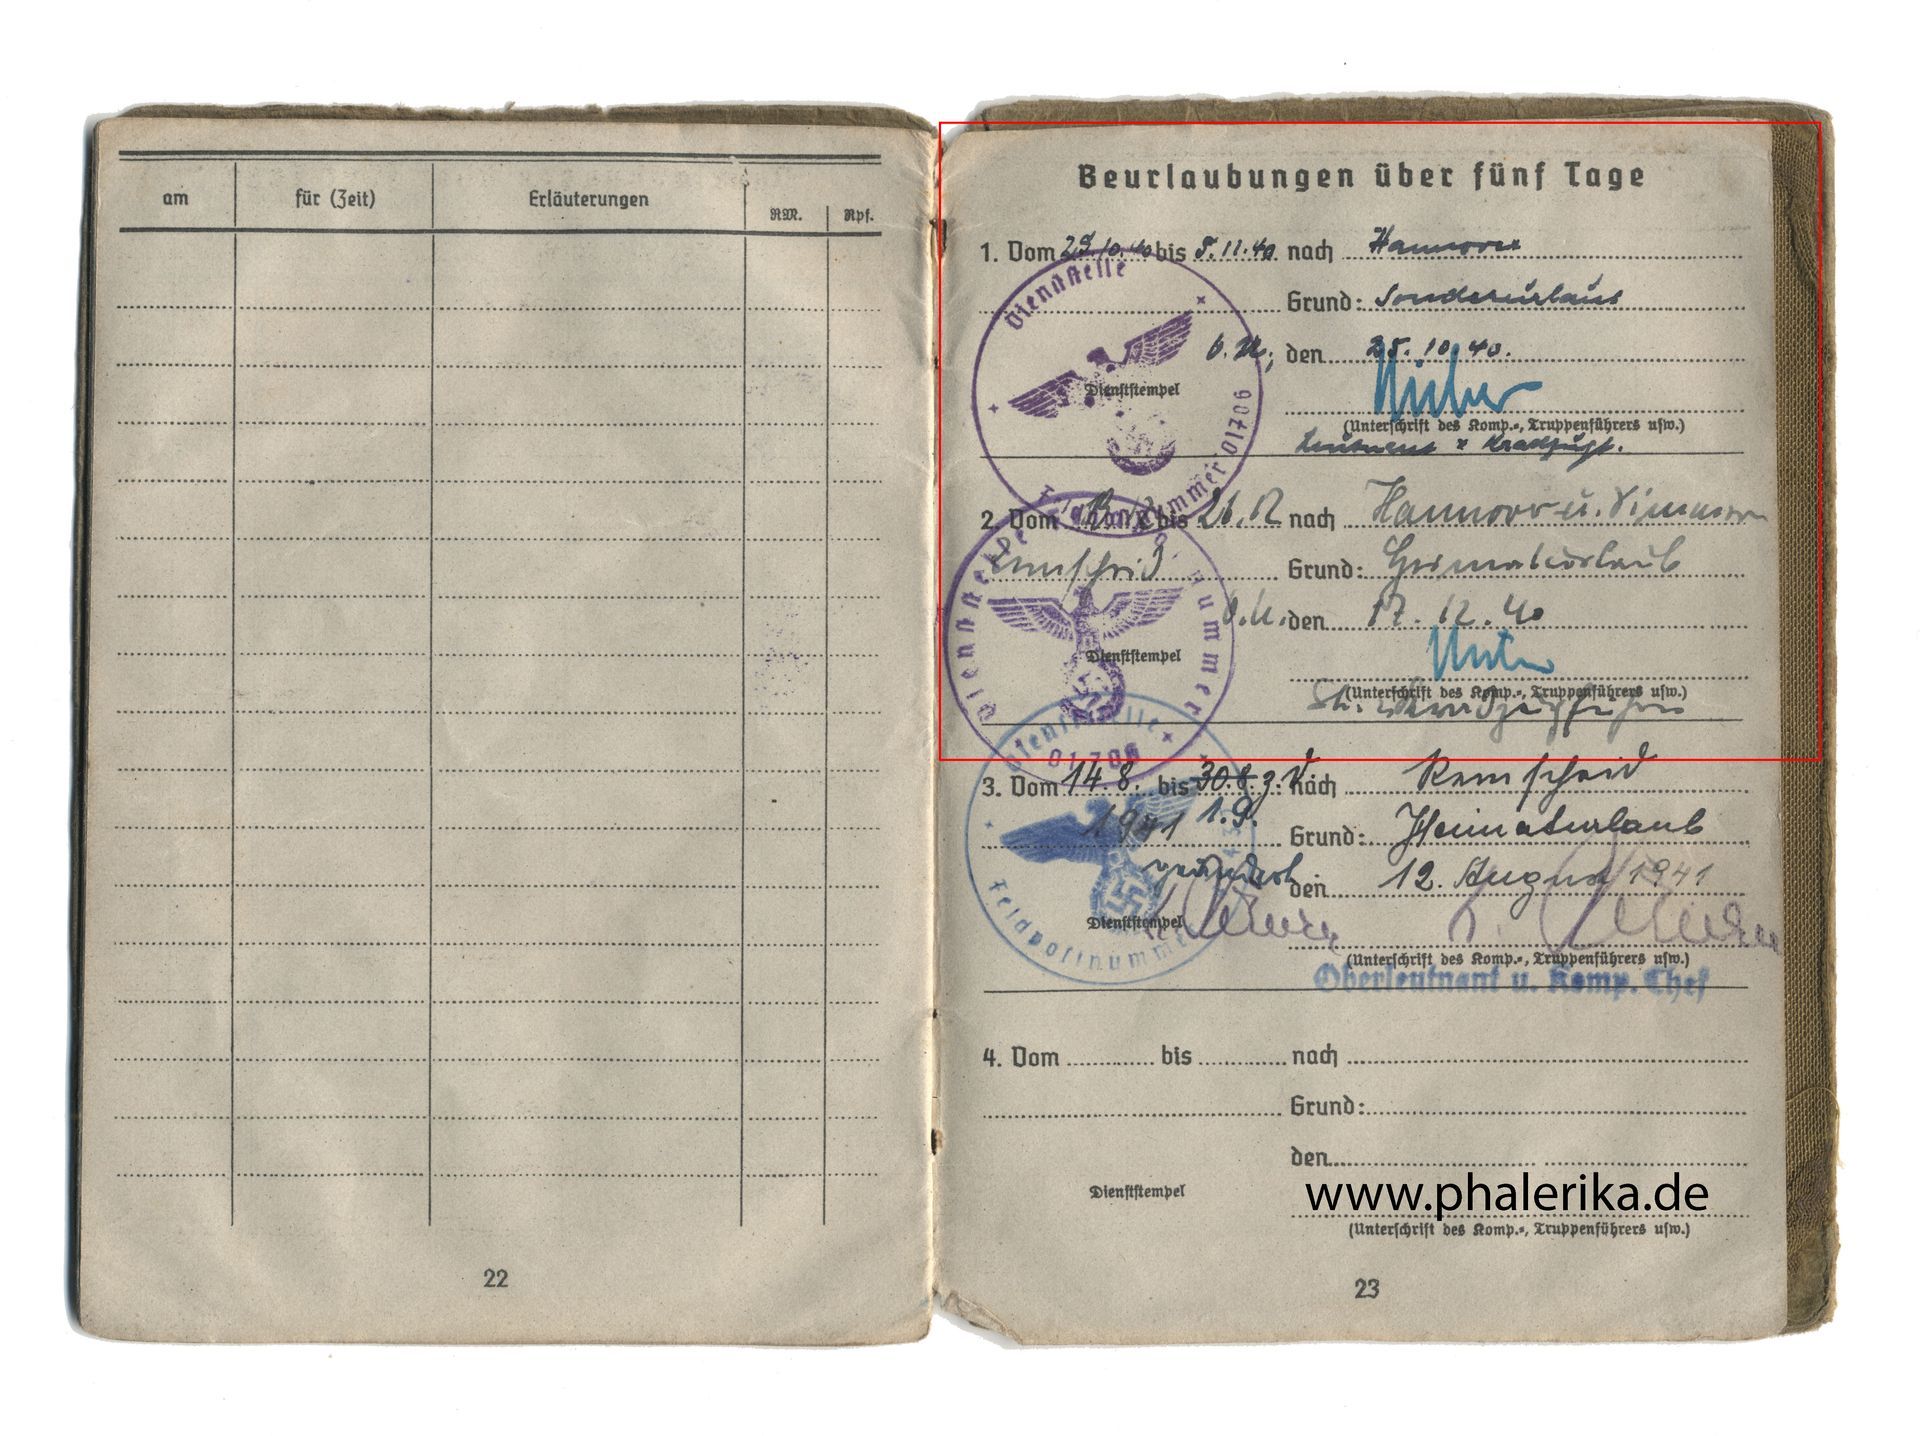 am für (Zeit) Erläuterungen RM. Rpf.
22
Beurlaubungen über fünf Tage
1. Vom 25.10.40 bis 5.11.40 nach Hannover
Grund: Sonderurlaub
O.U., den 25.10.40.
Dienststempel
(Unterschrift des Komp.-, Truppenführers usw.)
Leutnant
Dienststelle
Feldpostnummer 01706
2. Vom bis 26.12 nach Hannover u.
Remscheid Grund: Heimaturlaub
O.U. den 17.12.40
Dienststempel
(Unterschrift des Komp.-, Truppenführers usw.)
nummer
01706
3. Vom 14.8. bis 30.8. nach Remscheid
1941 1.9. Grund: Heimaturlaub
verändert den 12. August 1941
Dienststempel
(Unterschrift des Komp.-, Truppenführers usw.)
Oberleutnant u. Komp. Chef
Dienststelle
Feldpostnummer
4. Vom bis nach
Grund:
den
Dienststempel
www.phalerika.de
(Unterschrift des Komp.-, Truppenführers usw.)
23